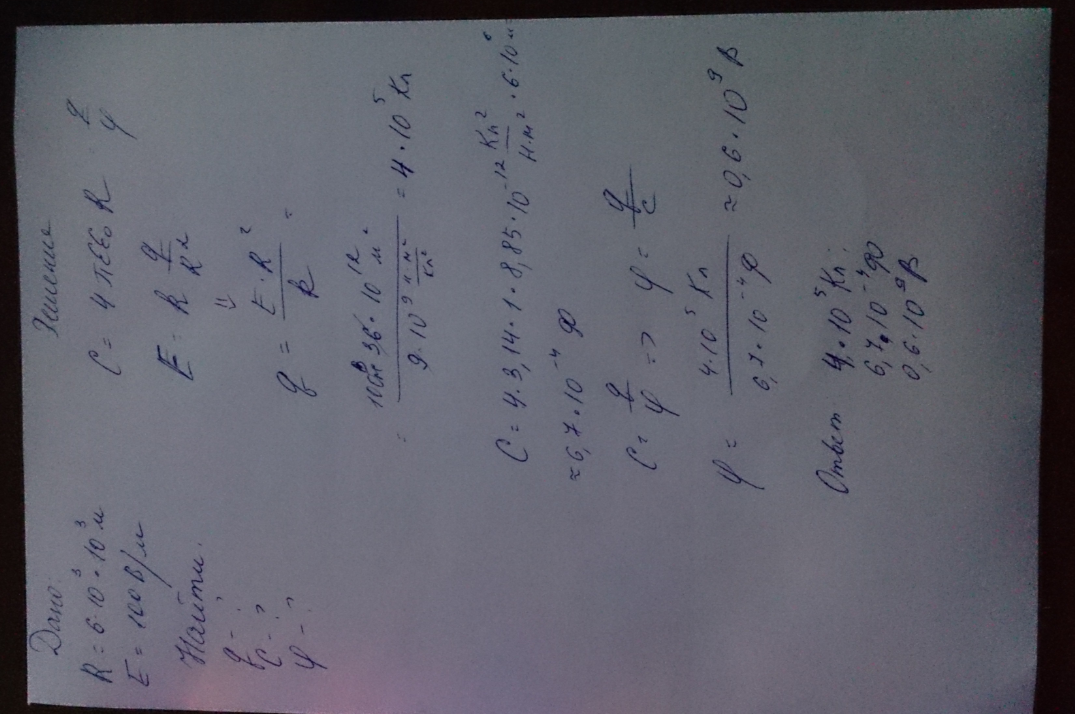 Дано:
R = 6·10³·10³ м
E = 100 В/м
Найти:
q - ?
C - ?
φ - ?
Решение
C = 4πεε₀R = q/φ
E = k q/R²
⇓
q = E·R²/k =
= 100 В/м · 36·10¹² м² / 9·10⁹ Н·м²/Кл² = 4·10⁵ Кл
C = 4·3,14·1·8,85·10⁻¹² Кл²/Н·м² · 6·10⁶ м =
≈ 6,7·10⁻⁴ Ф
C = q/φ => φ = q/C
φ = 4·10⁵ Кл / 6,7·10⁻⁴ Ф ≈ 0,6·10⁹ В
Ответ 4·10⁵ Кл;
6,7·10⁻⁴ Ф
0,6·10⁹ В